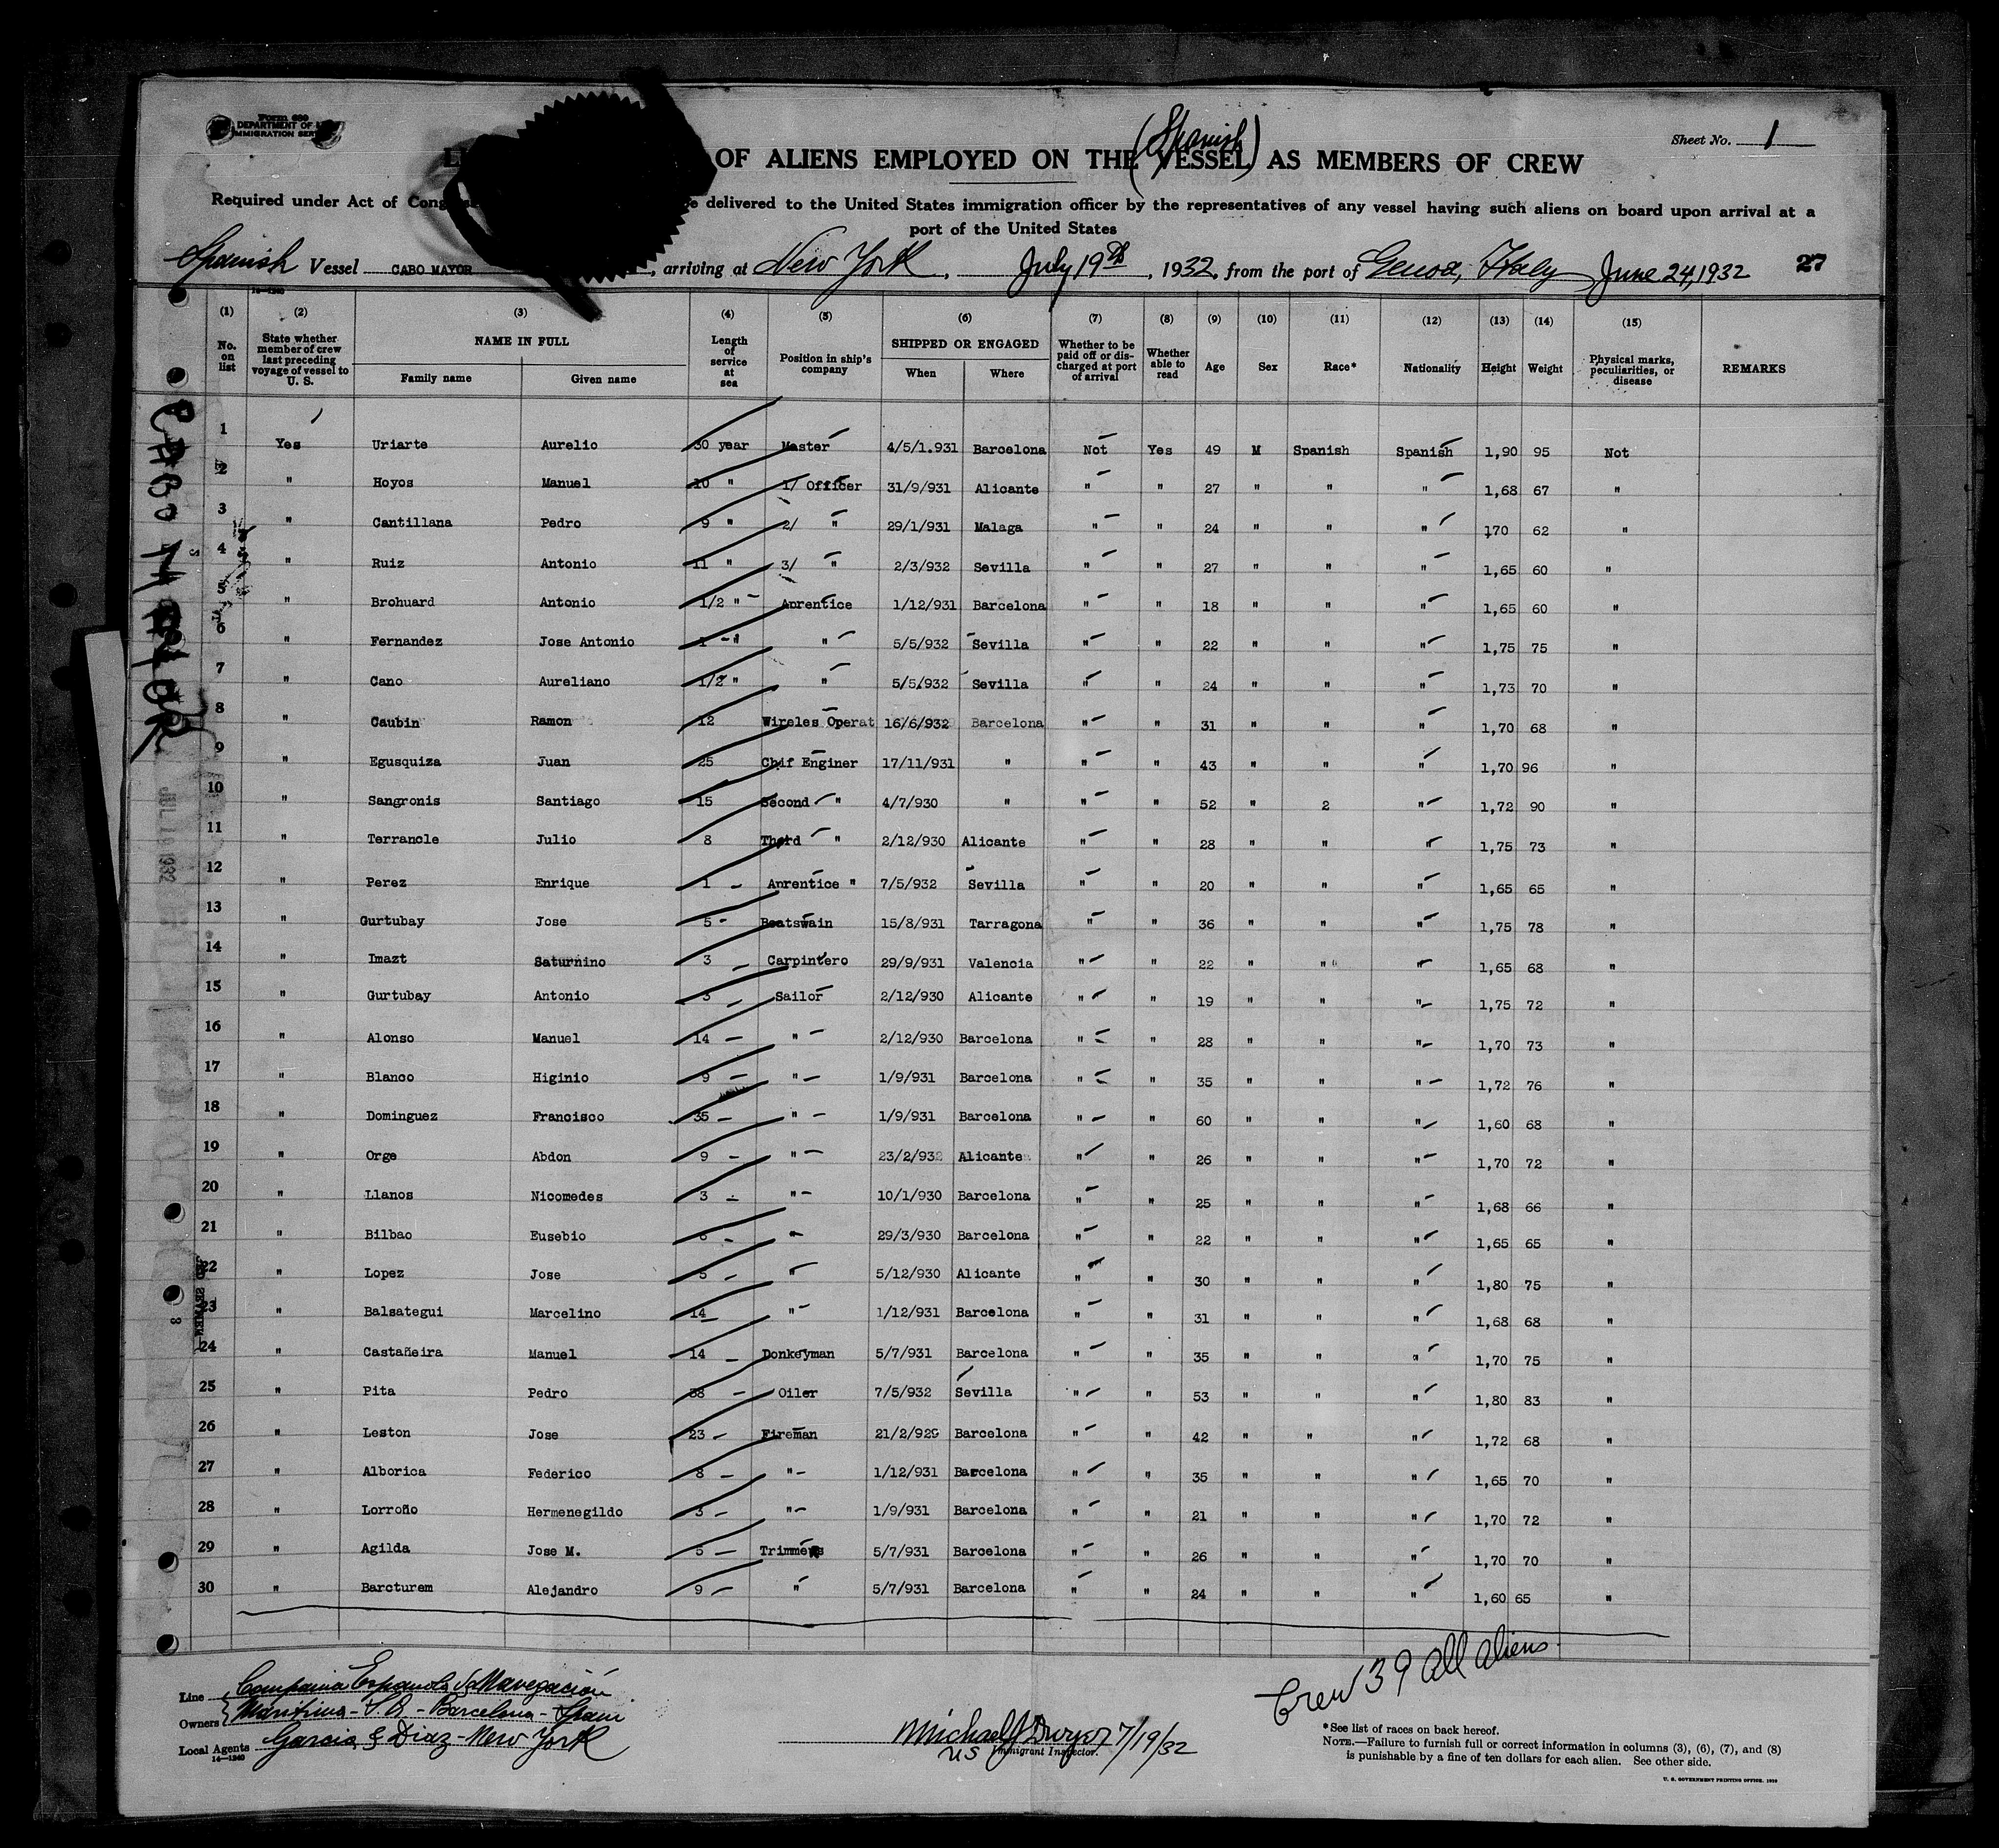 Form 689
DEPARTMENT OF
IMMIGRATION
Sheet No. 1
(Spanish)
OF ALIENS EMPLOYED ON THE VESSEL AS MEMBERS OF CREW
Required under Act of delivered to the United States immigration officer by the representatives of any vessel having such aliens on board upon arrival at a
port of the United States
Spanish Vessel CABO MAYOR, arriving at New York, July 19th, 1932, from the port of Genoa, Italy June 24, 1932 27
14—1240
(1) (2) (3) (4) (5) (6) (7) (8) (9) (10) (11) (12) (13) (14) (15)
No. on list State whether member of crew last preceding voyage of vessel to U. S. NAME IN FULL Family name Given name Length of service at sea Position in ship's company SHIPPED OR ENGAGED When Where Whether to be paid off or discharged at port of arrival Whether able to read Age Sex Race* Nationality Height Weight Physical marks, peculiarities, or disease REMARKS
1 Yes Uriarte Aurelio 30 year Master 4/5/1.931 Barcelona Not Yes 49 M Spanish Spanish 1,90 95 Not
2 " Hoyos Manuel 10 " 1/ Officer 31/9/931 Alicante " " 27 " " " 1,68 67 "
3 " Cantillana Pedro 9 " 2/ " 29/1/931 Malaga " " 24 " " " 170 62 "
4 " Ruiz Antonio 11 " 3/ " 2/3/932 Sevilla " " 27 " " " 1,65 60 "
5 " Brohuard Antonio 1/2 " Aprentice 1/12/931 Barcelona " " 18 " " " 1,65 60 "
6 " Fernandez Jose Antonio 1 " " 5/5/932 Sevilla " " 22 " " " 1,75 75 "
7 " Cano Aureliano 1/2 " " 5/5.932 Sevilla " " 24 " " " 1,73 70 "
8 " Caubin Ramon 12 Wireles Operat 16/6/932 Barcelona " " 31 " " " 1,70 68 "
9 " Egusquiza Juan 25 Chif Enginer 17/11/931 " " " 43 " " " 1,70 96 "
10 " Sangronis Santiago 15 Second " 4/7/930 " " " 52 " 2 " 1,72 90 "
11 " Terrancle Julio 8 Therd " 2/12/930 Alicante " " 28 " " " 1,75 73 "
12 " Perez Enrique 1 Aprentice " 7/5/932 Sevilla " " 20 " " " 1,65 65 "
13 " Gurtubay Jose 5 Boatswain 15/8/931 Tarragona " " 36 " " " 1,75 78 "
14 " Imazt Saturnino 3 Carpintero 29/9/931 Valencia " " 22 " " " 1,65 68 "
15 " Gurtubay Antonio 3 Sailor 2/12/930 Alicante " " 19 " " " 1,75 72 "
16 " Alonso Manuel 14 " 2/12/930 Barcelona " " 28 " " " 1,70 73 "
17 " Blanco Higinio 9 " 1/9/931 Barcelona " " 35 " " " 1,72 76 "
18 " Dominguez Francisco 35 " 1/9/931 Barcelona " " 60 " " " 1,60 68 "
19 " Orge Abdon 9 " 23/2/932 Alicante " " 26 " " " 1,70 72 "
20 " Llanos Nicomedes 3 " 10/1/930 Barcelona " " 25 " " " 1,68 66 "
21 " Bilbao Eusebio " 29/3/930 Barcelona " " 22 " " " 1,65 65 "
22 " Lopez Jose 5 " 5/12/930 Alicante " " 30 " " " 1,80 75 "
23 " Balsategui Marcelino 14 " 1/12/931 Barcelona " " 31 " " " 1,68 68 "
24 " Castañeira Manuel 14 Donkeyman 5/7/931 Barcelona " " 35 " " " 1,70 75 "
25 " Pita Pedro 38 Oiler 7/5/932 Sevilla " " 53 " " " 1,80 83 "
26 " Leston Jose 23 Fireman 21/2/929 Barcelona " " 42 " " " 1,72 68 "
27 " Alborica Federico 8 " 1/12/931 Barcelona " " 35 " " " 1,65 70 "
28 " Lorroño Hermenegildo 3 " 1/9/931 Barcelona " " 21 " " " 1,70 72 "
29 " Agilda Jose M. 5 Trimmers 5/7/931 Barcelona " " 26 " " " 1,70 70 "
30 " Barcturem Alejandro 9 " 5/7/931 Barcelona " " 24 " " " 1,60 65 "
CABO MAYOR
JUL 19 1932
Crew 39 all aliens
Line Compania Española de Navegación
Owners Maritima - S.A. - Barcelona - Spain
Local Agents Garcia & Diaz - New York
14—1240
Michael J Dwyer 7/19/32
US Immigrant Inspector.
*See list of races on back hereof.
NOTE.—Failure to furnish full or correct information in columns (3), (6), (7), and (8)
is punishable by a fine of ten dollars for each alien. See other side.
U. S. GOVERNMENT PRINTING OFFICE. 1929